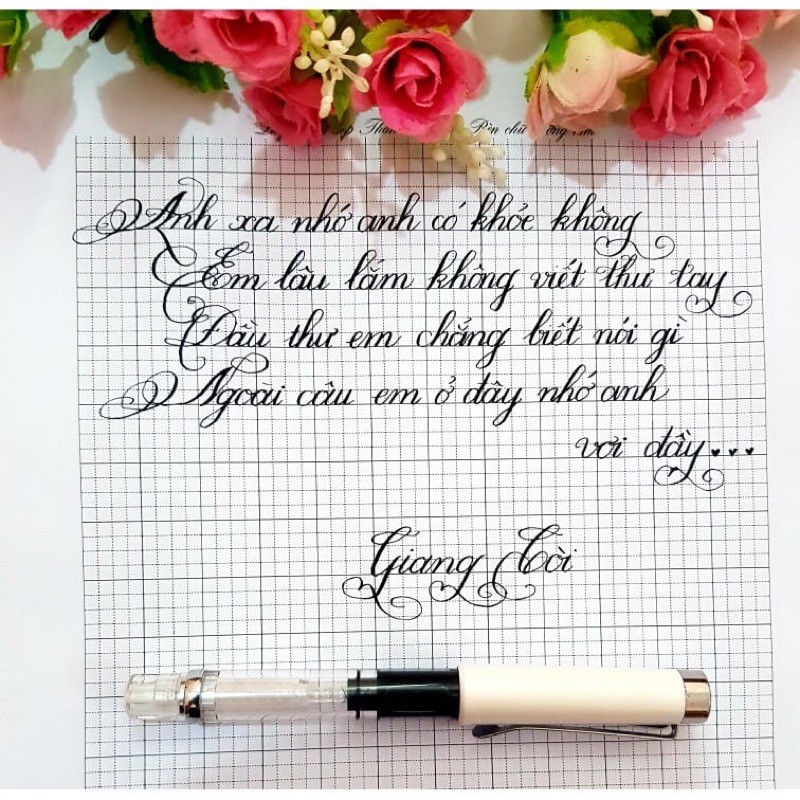 Pèn chữ
Anh xa nhớ anh có khỏe không
Em lâu lắm không viết thư tay
Đầu thư em chẳng biết nói gì
Ngoài câu em ở đây nhớ anh
vơi đầy...
Giang Còi